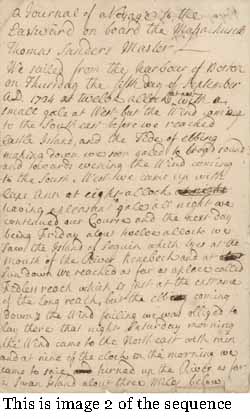 a Journal of a Voyage to the
Eastward on board the Massachusets
Thomas Sanders Master
We sailed from the harbour of Boston
on Thursday the fifth day of September
A.D. at twelve with a
small gale at West but the Wind coming
to the South east before we reached
Castle Island, and the Tide of ebbing
making down we
and towards evening the Wind coming
to the South West we came up with
Cape Ann at eight a clock
having a gale all night we
continued our Course and the next day
being Friday about a clock we
the Island of Seguin which lyes at the
mouth of the River Kenebeck and at
Sundown we reached as far as a place called
reach which is just at the entrance
of the long reach, but the ebb coming
down & the Wind failing we was obliged to
lay there that night Saturday morning
the Wind came to the North east with rain
and at nine of the clock in the morning we
came to sail turned up the River as far
as Swan Island about three miles below
This is image 2 of the sequence